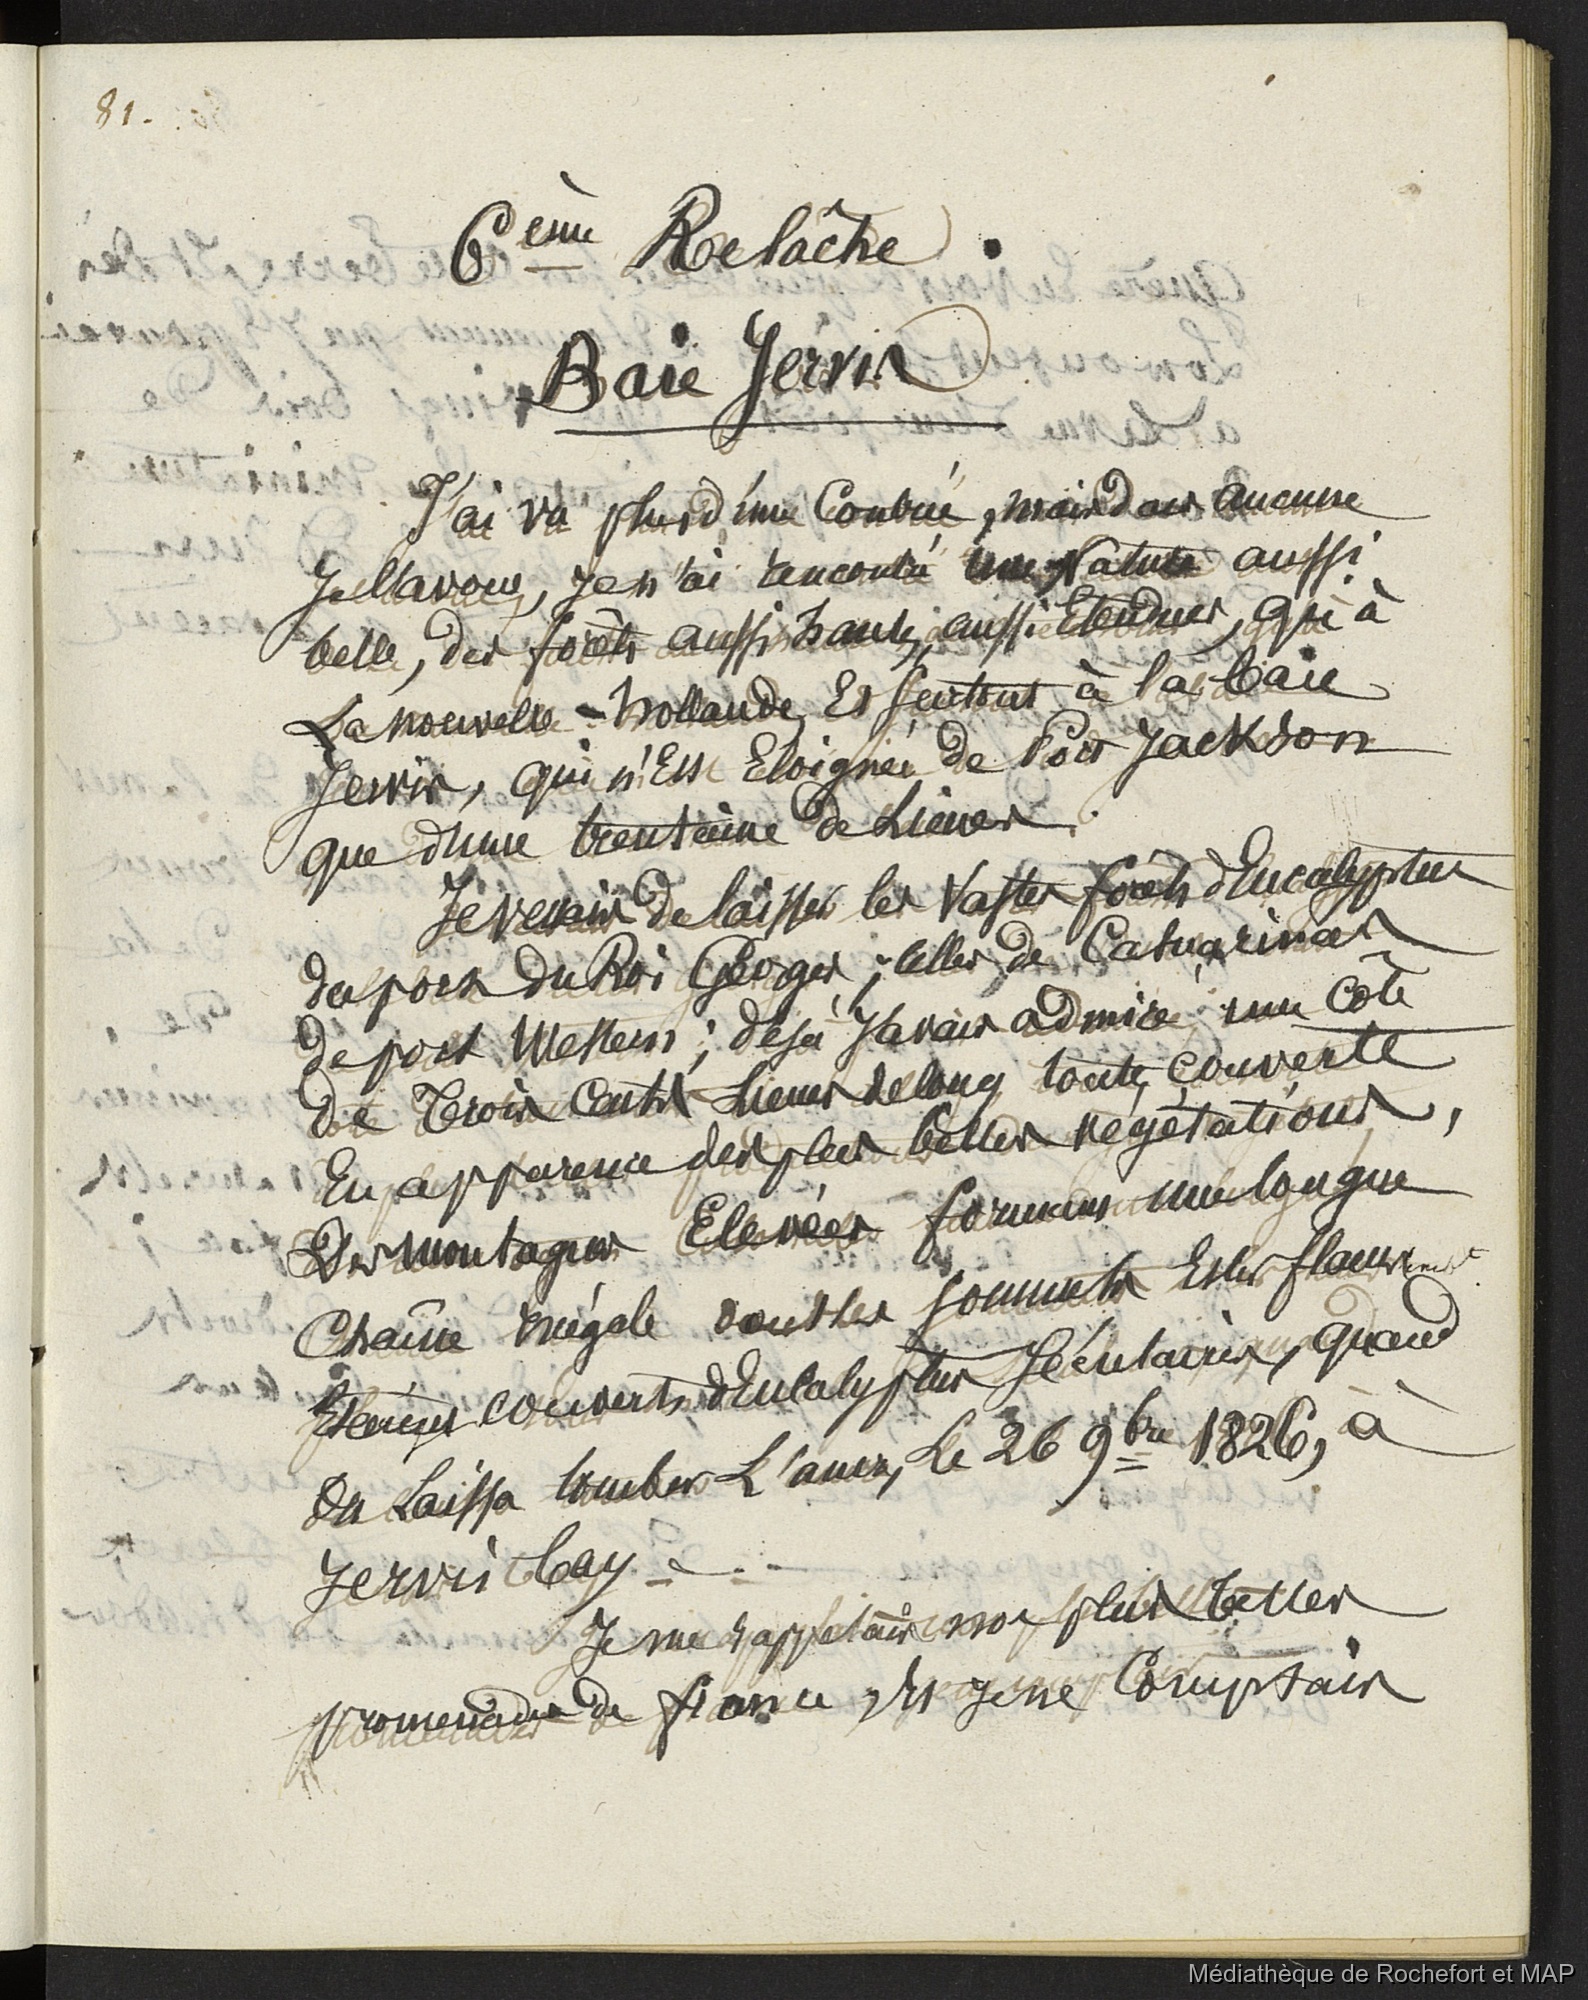 81.
6ème Relâche.
Baie Jervis
J'ai vu plus d'une Contrée, mais dans aucune
Je l'avoue, Je n'ai rencontré une Nature aussi
belle, des forêts aussi hautes, aussi Etendues, qu'à
La nouvelle-hollande, Et surtout à la baie
Jervis, qui n'Est Eloignée de Port Jackson
que d'une trentaine de Lieues.
Je venais de laisser les Vastes forêts d'Eucalyptus
du port du Roi Georges; celles de Casuarinas
de port Western; déjà J'avais admiré une Côte
de Trois Cents Lieues de long toute couverte
En apparence des plus belles végétations,
Des montagnes Elevées formant une longue
Chaîne inégale dont les sommets Et les flancs
couverts d'Eucalyptus Séculaires, quand
On Laissa tomber L'ancre, Le 26 9bre 1826, à
Jervis bay
Je me rappelais nos plus belles
promenades de france, Et Je ne Comptais
Médiathèque de Rochefort et MAP